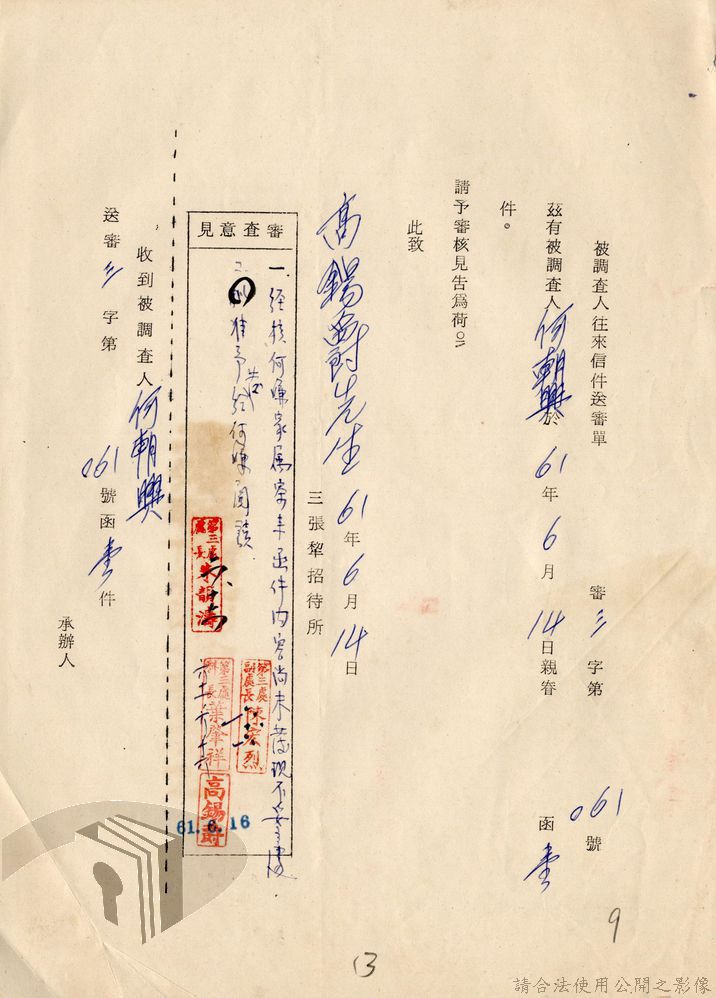 被調查人往來信件送審單
審三字第061號
茲有被調查人何朝興於61年6月14日親眷函壹
件。
請予審核見告為荷。
此致
高錫爵先生
三張犂招待所
61年6月14日
審查意見
一、經核何嫌家屬寄來函件內容尚未發現不妥之處
二、准予發給何嫌閱讀
第三處處長朱韻濤
第三處副處長陳宏烈
第三處科長葉肇祥
高錫爵
61.6.16
收到被調查人何朝興
送審三字第061號函壹件
承辦人
9
13
請合法使用公開之影像